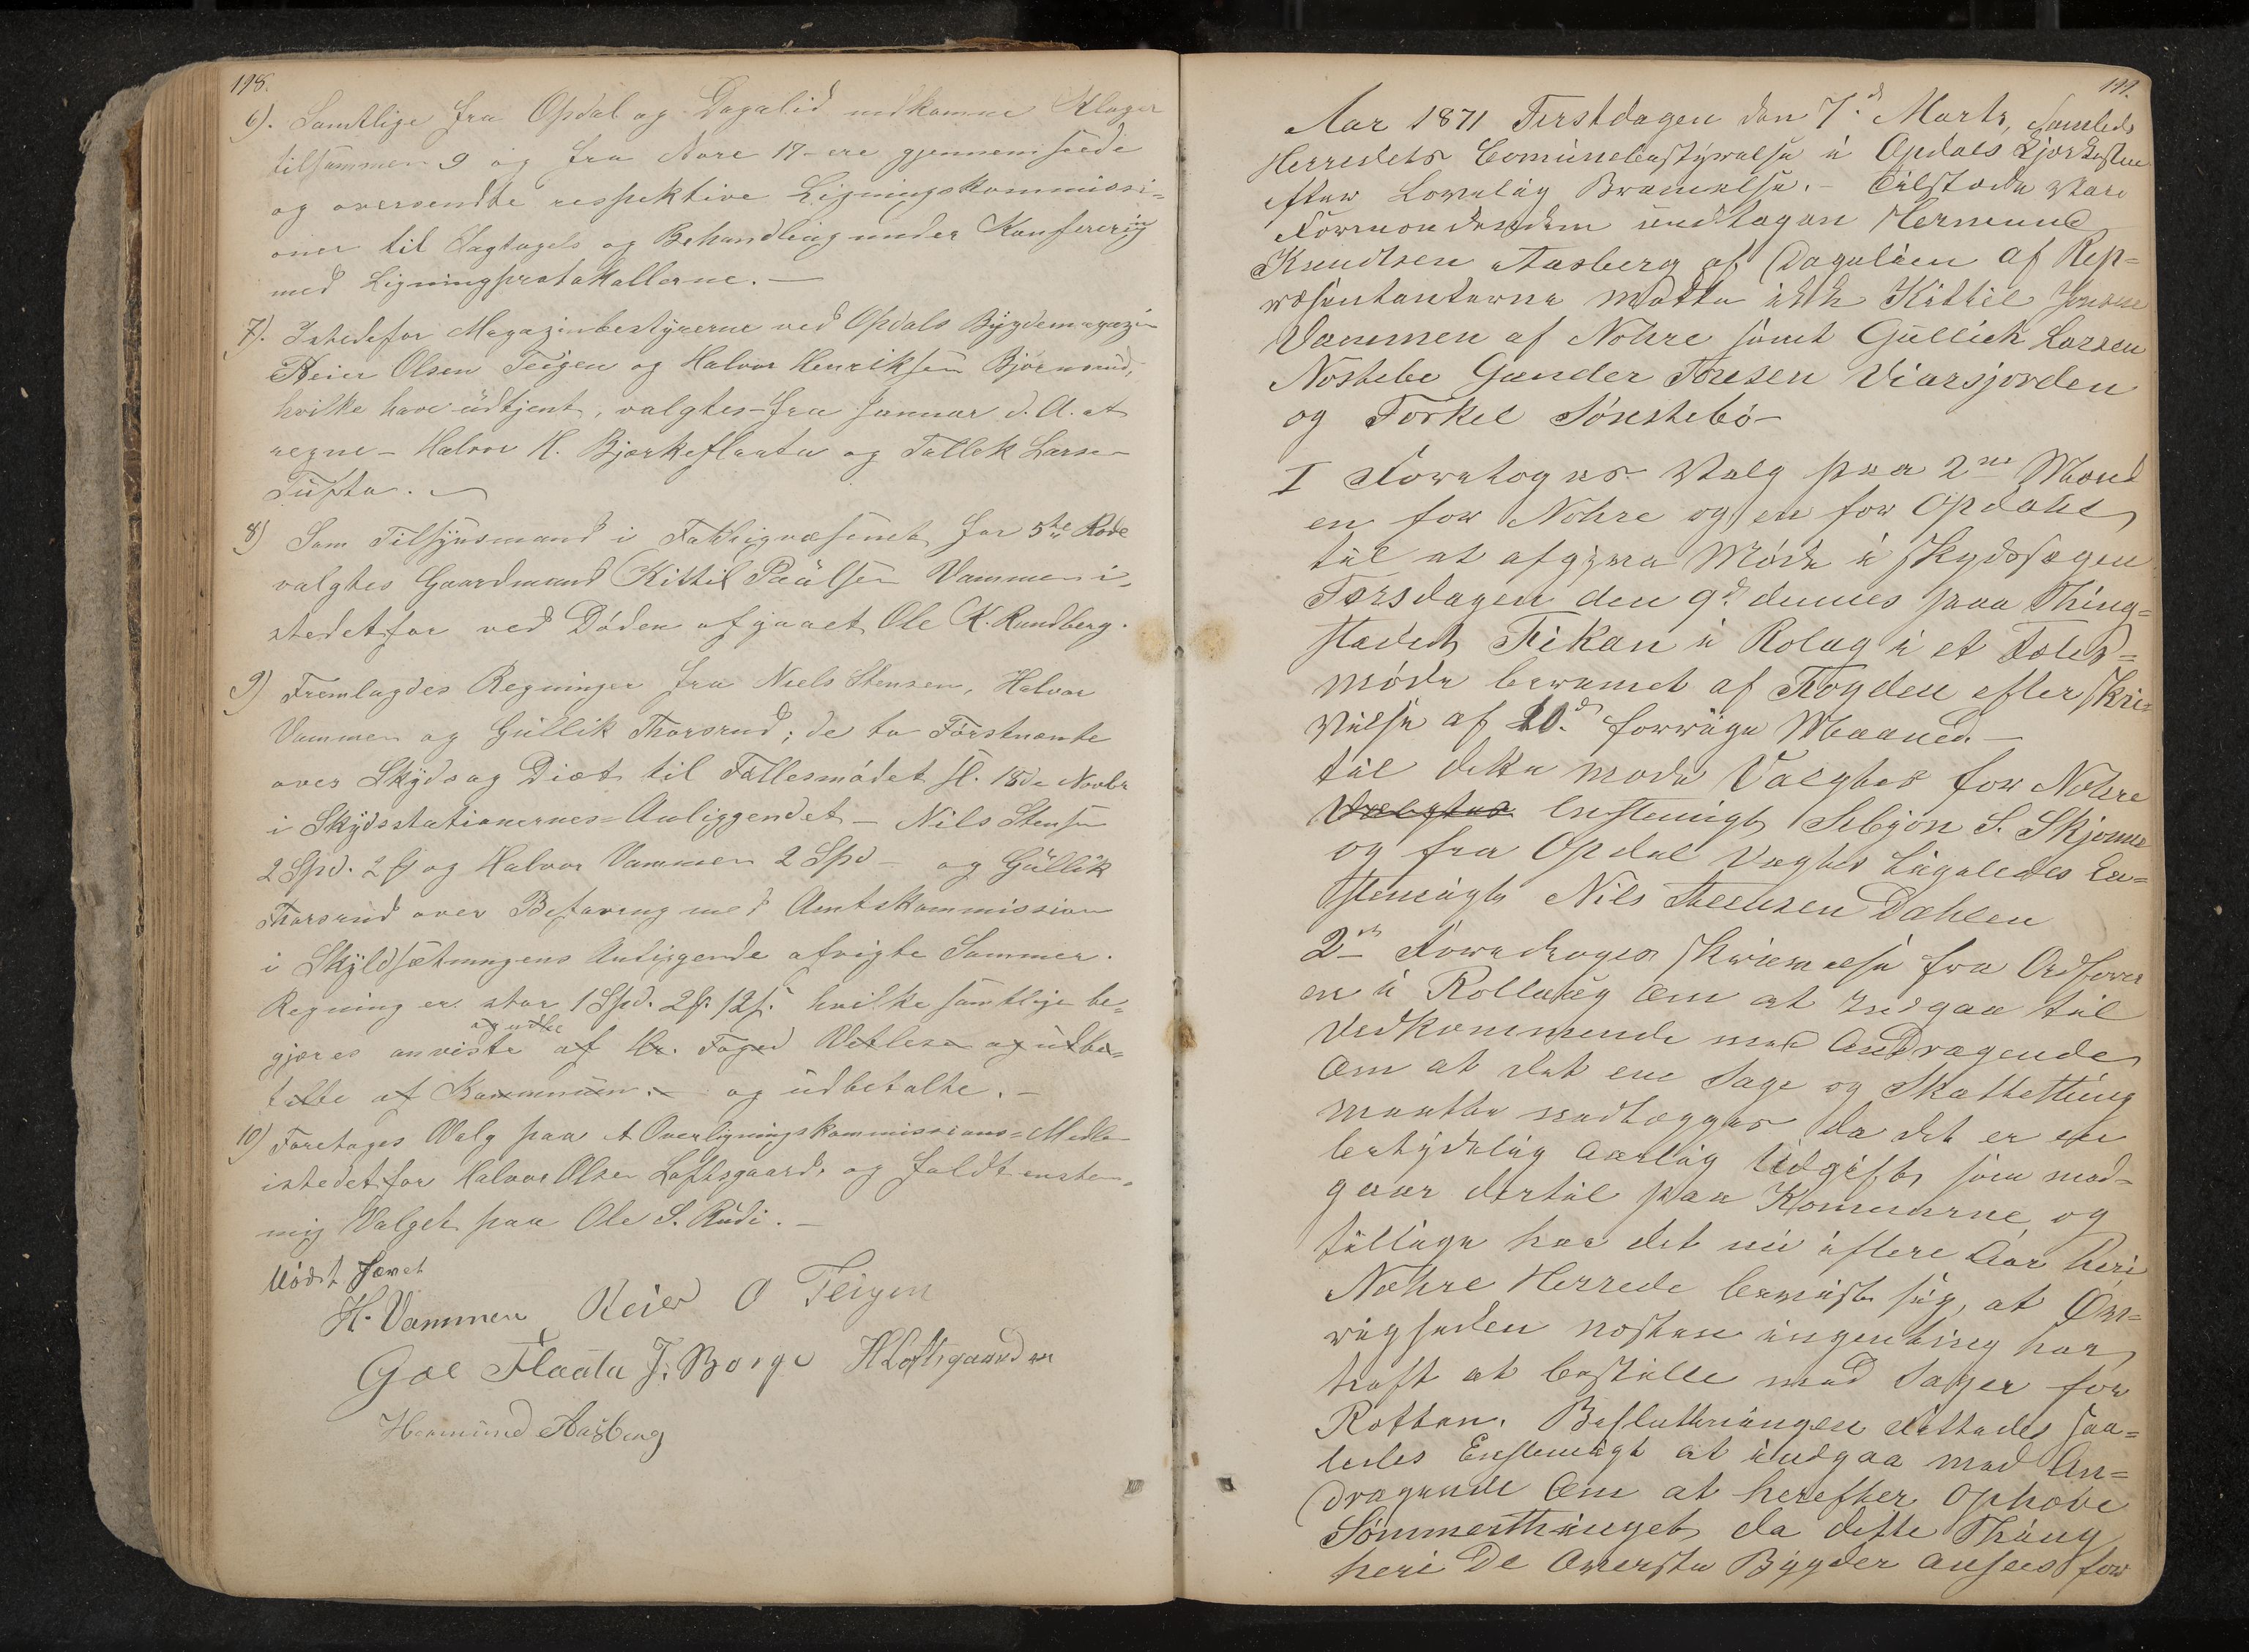 198.
6). Samtlige fra Opdal og Dagalid indkomne Klager
tilsammen 9 og fra Nore 17-ere gjennemseede
og oversendte respektive Ligningskommissi-
oner til Iagtagels og Behandling under Konferering
med Ligningsprotokollerne. —
7). Istedefor Magazinbestyrerne ved Opdals Bygdemagazin
Reier Olsen Teigen og Halvor Henriksen Bjørnsrud,
hvilke have udtjent, valgtes fra Januar d. A. at
regne - Halvor H. Bjerkeflaata og Tollek Larsen
Tufta. —
8) Som Tilsynsmand i Fattigvæsenet for 5te Rode
valgtes Gaardmand Kittil Paulsen Vammen i-
stedetfor ved Døden afgaaet Ole K. Rundberg.
9) Fremlagdes Regninger fra Niels Stensen, Halvor
Vammen og Gullik Thorsrud; de to Førstnævnte
over Skyds og Diæt til Fællesmødet sl. 18de Novbr
i Skydsstationernes-Anliggendet - Nils Stensen
2 Spd. 2 ß og Halvor Vammen 2 Spd - og Gullik
Thorsrud over Befaring med Amtskommission
i Skyldsætningens Anliggende afvigte Sommer.
Regning er stor 1 Spd. 2 ß 12 s. hvilke samtlige be-
gjæres anviste af Hr. Foged Vetlesen og udbe-
talte af Kommunen. og udbetalte. —
10) Foretages Valg paa et Overligningskommissions-Medlem
istedetfor Halvor Olsen Loftsgaard. og faldt enstem-
mig Valget paa Ole S. Rudi. —
Mødet hævet
H. Vammen Reier O Teigen
Goe Flaata J. Borge H Loftsgaarden
Hermund Aasberg
199.
Aar 1871 Tirsdagen den 7.d Marts, samledes
Herredets Comunebestyrelse i Opdals Kjørkestue
efter Lovelig Brammelse. - Tilstæde vare
Formændendem undtagen Hermund
Knudtsen Aasberg af Dagalien af Rep-
ræsentanterne mødte ikk Kittil Jonsen
Vammen af Nohre samt Gullick Larsen
Nøstebe Gunder Toresen Viersjorden
og Torkel Sønstebø -
I Foretoges Valg paa 2de Mænd
en for Nohre og en for Opdahl
til at afgjøre Møde i Skydssagen
Torsdagen den 9d dennes paa Thing-
stedet Fikan i Rolag i et Fæles-
møde berammet af Fogden efter Skri-
velse af 20.d forrige Maaned. —
til dette møde Valgtes for Nohre
Valgtes Enstemigt Selgjøn S. Skjønne
og fra Opdal Valgtes Ligeledes En-
stemigt Nils Steensen Dæhlen
2n Foredroges Skrivelse fra Ordføre
en i Rollaug om at indgaa til
Vedkommende med Andragende
om at det ene Sage og Skattetting
maatte nedlægges da det er en
betydelig Aarlig Udgift som med-
gaar dertil paa Komunerne og
tillige har det nu i flere Aar heri
Nohre Herrede bevist sig, at Øv-
righeden nesten ingenting har
haft at bestille med Sager for
Retten. Beslutningen Fattedes saa-
ledes Enstemigt at indgaa med An-
dragende om at herefter Ophæve
Sommerthinget da dette Thing
heri De Øverste Bygder ansees for